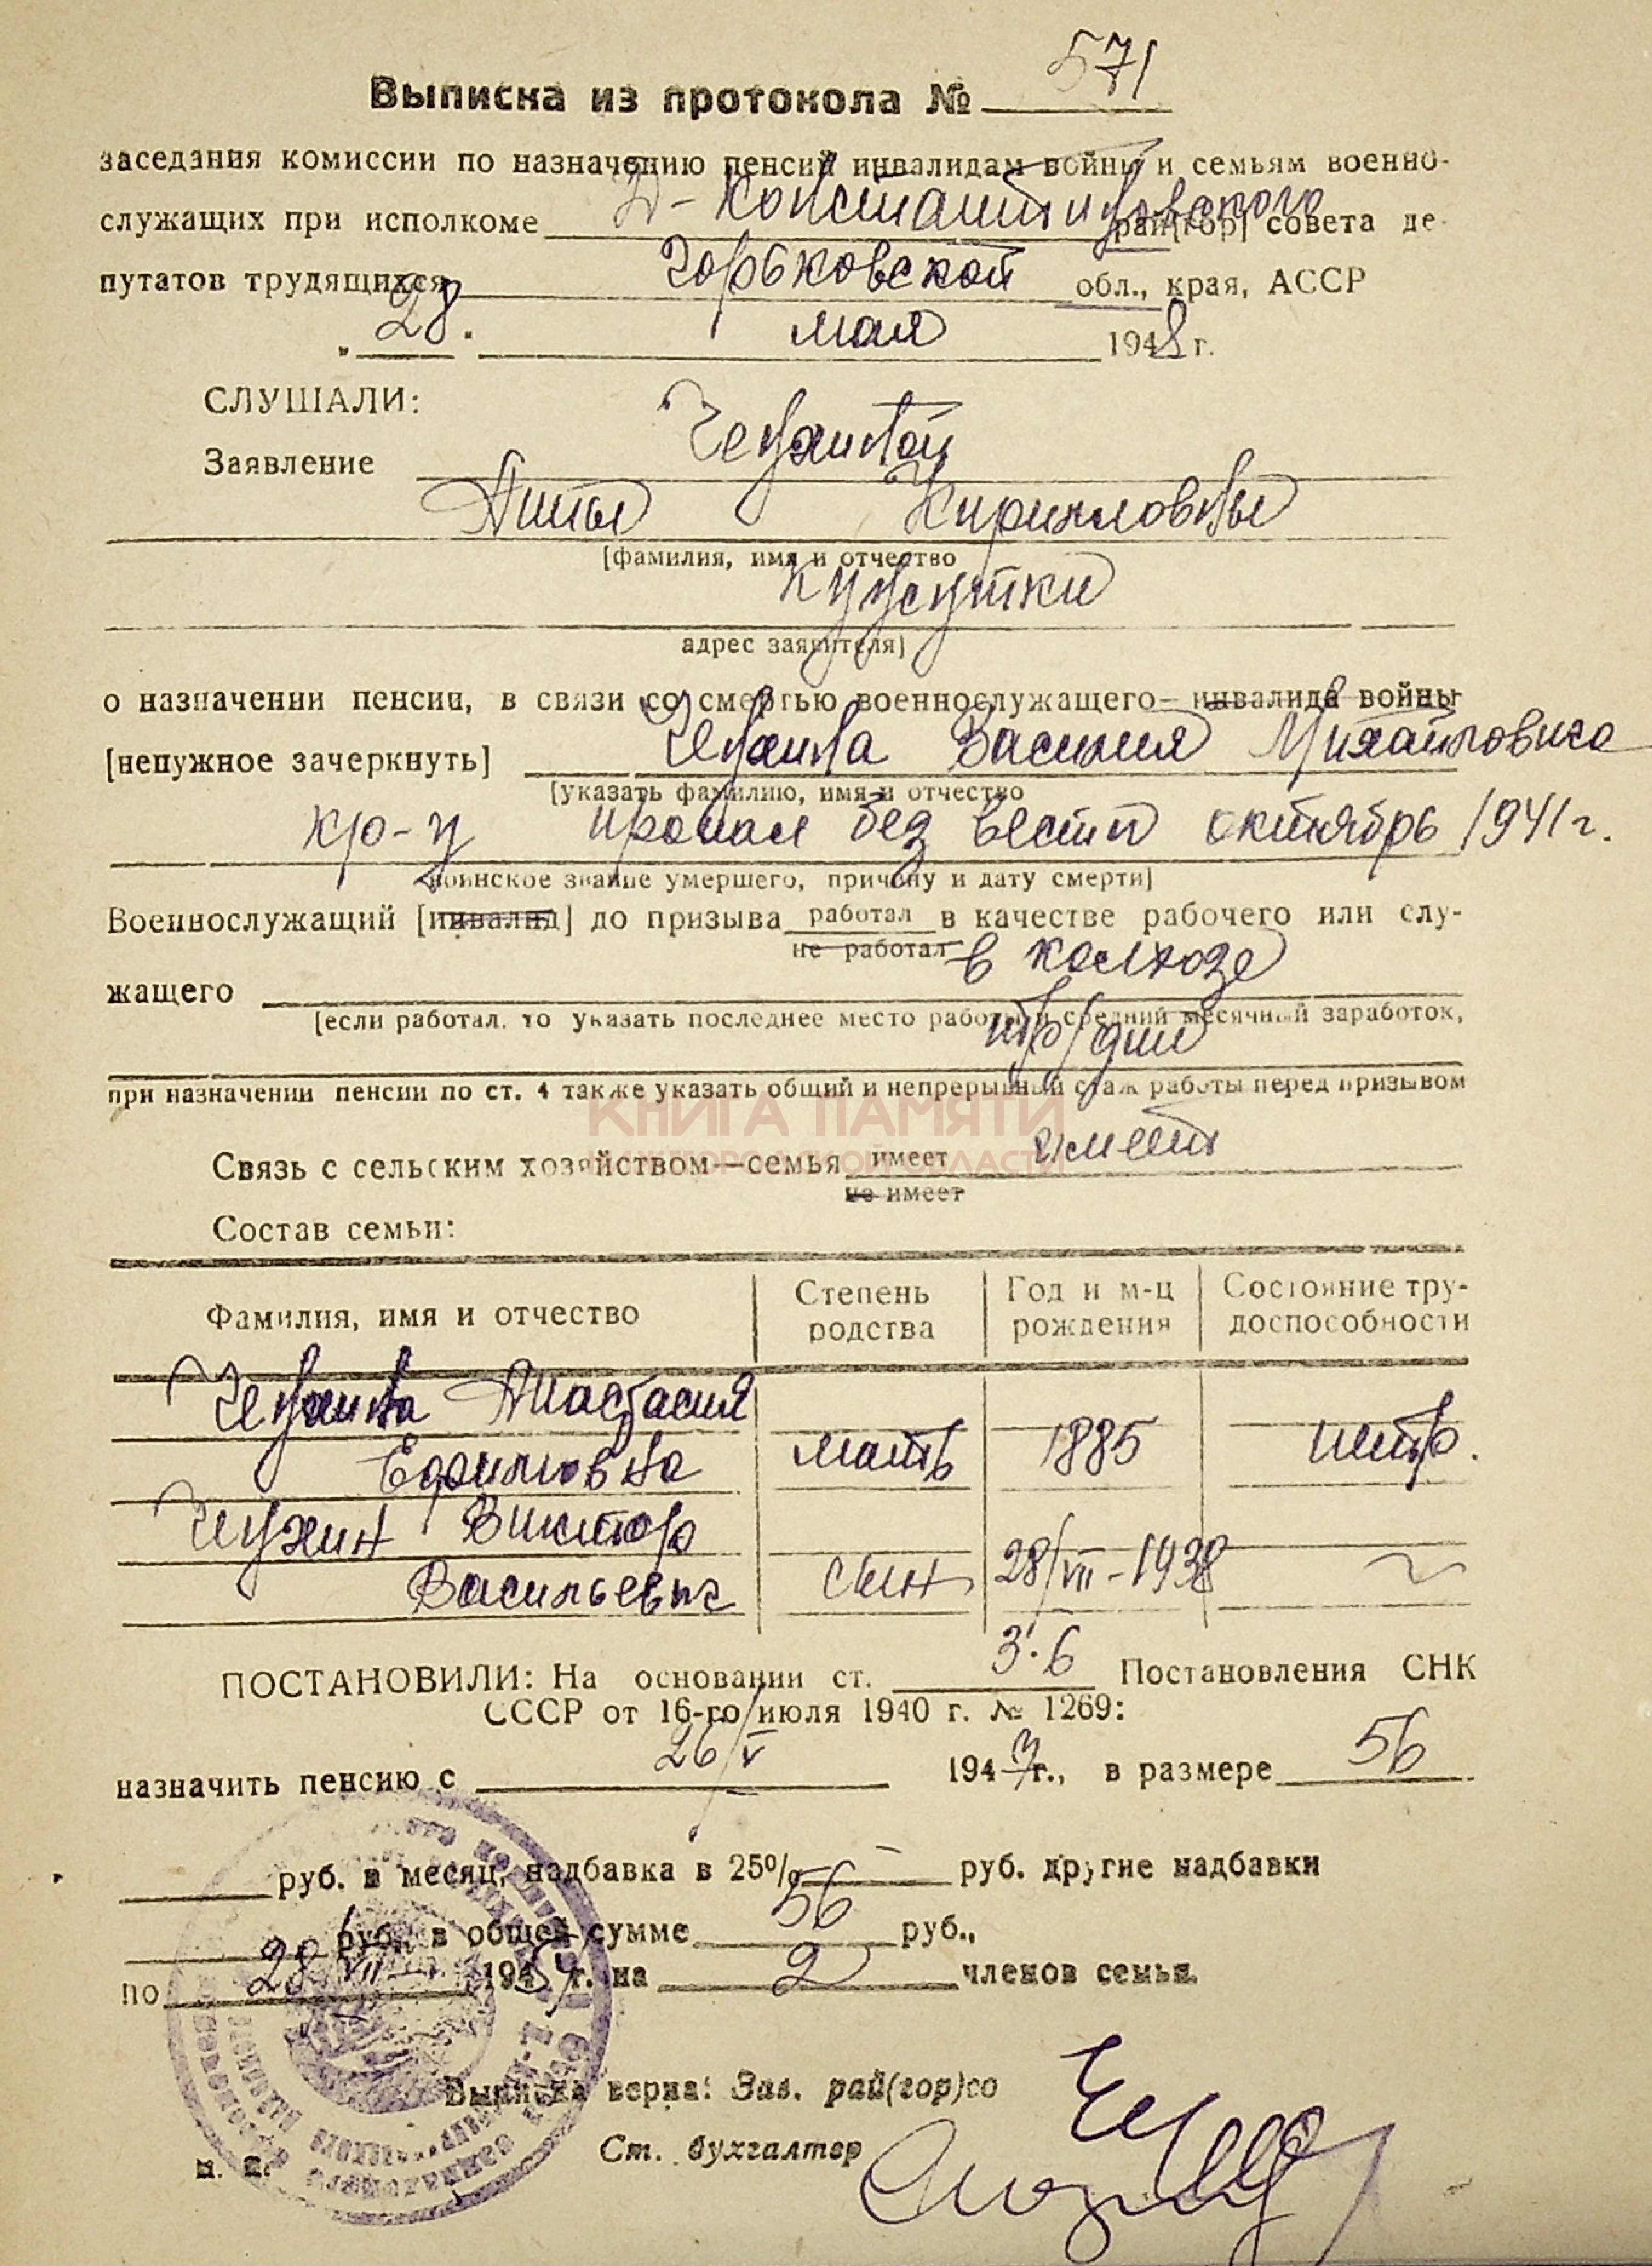 Выписка из протокола № 571
заседания комиссии по назначению пенсий инвалидам войны и семьям военно-
служащих при исполкоме Д-Константиновского рай[гор] совета де-
путатов трудящихся Горьковской обл., края, АССР
„28" мая 1948 г.
СЛУШАЛИ:
Заявление Чедхиной
Анны Кирилловны
[фамилия, имя и отчество
адрес заявителя]
о назначении пенсии, в связи со смертью военнослужащего — инвалида войны
[ненужное зачеркнуть] Василия Михайловича
[указать фамилию, имя и отчество
кр-ц пропал без вести октябрь 1941 г.
воинское звание умершего, причину и дату смерти]
Военнослужащий [инвалид] до призыва работал в качестве рабочего или слу-
не работал в колхозе
жащего
[если работал, то указать последнее место работы и средний месячный заработок,
тр/дни
при назначении пенсии по ст. 4 также указать общий и непрерывный стаж работы перед призывом
КНИГА ПАМЯТИ
НИЖЕГОРОДСКОЙ ОБЛАСТИ
Связь с сельским хозяйством—семья имеет имеет
не имеет
Состав семьи:
Фамилия, имя и отчество Степень родства Год и м-ц рождения Состояние тру-доспособности
Анастасия
Ефимовна мать 1885 нетр.
Виктор
Васильевич сын 28/VII-1938
ПОСТАНОВИЛИ: На основании ст. 3.6 Постановления СНК
СССР от 16-го июля 1940 г. № 1269:
назначить пенсию с 26/V 1947 г., в размере 56
руб. в месяц, надбавка в 25% — руб. другие надбавки
руб., в общей сумме 56 руб.,
по 28/VII 1954 г. на 2 членов семьи.
Выписка верна: Зав. рай(гор)со
Ст. бухгалтер
м. п.